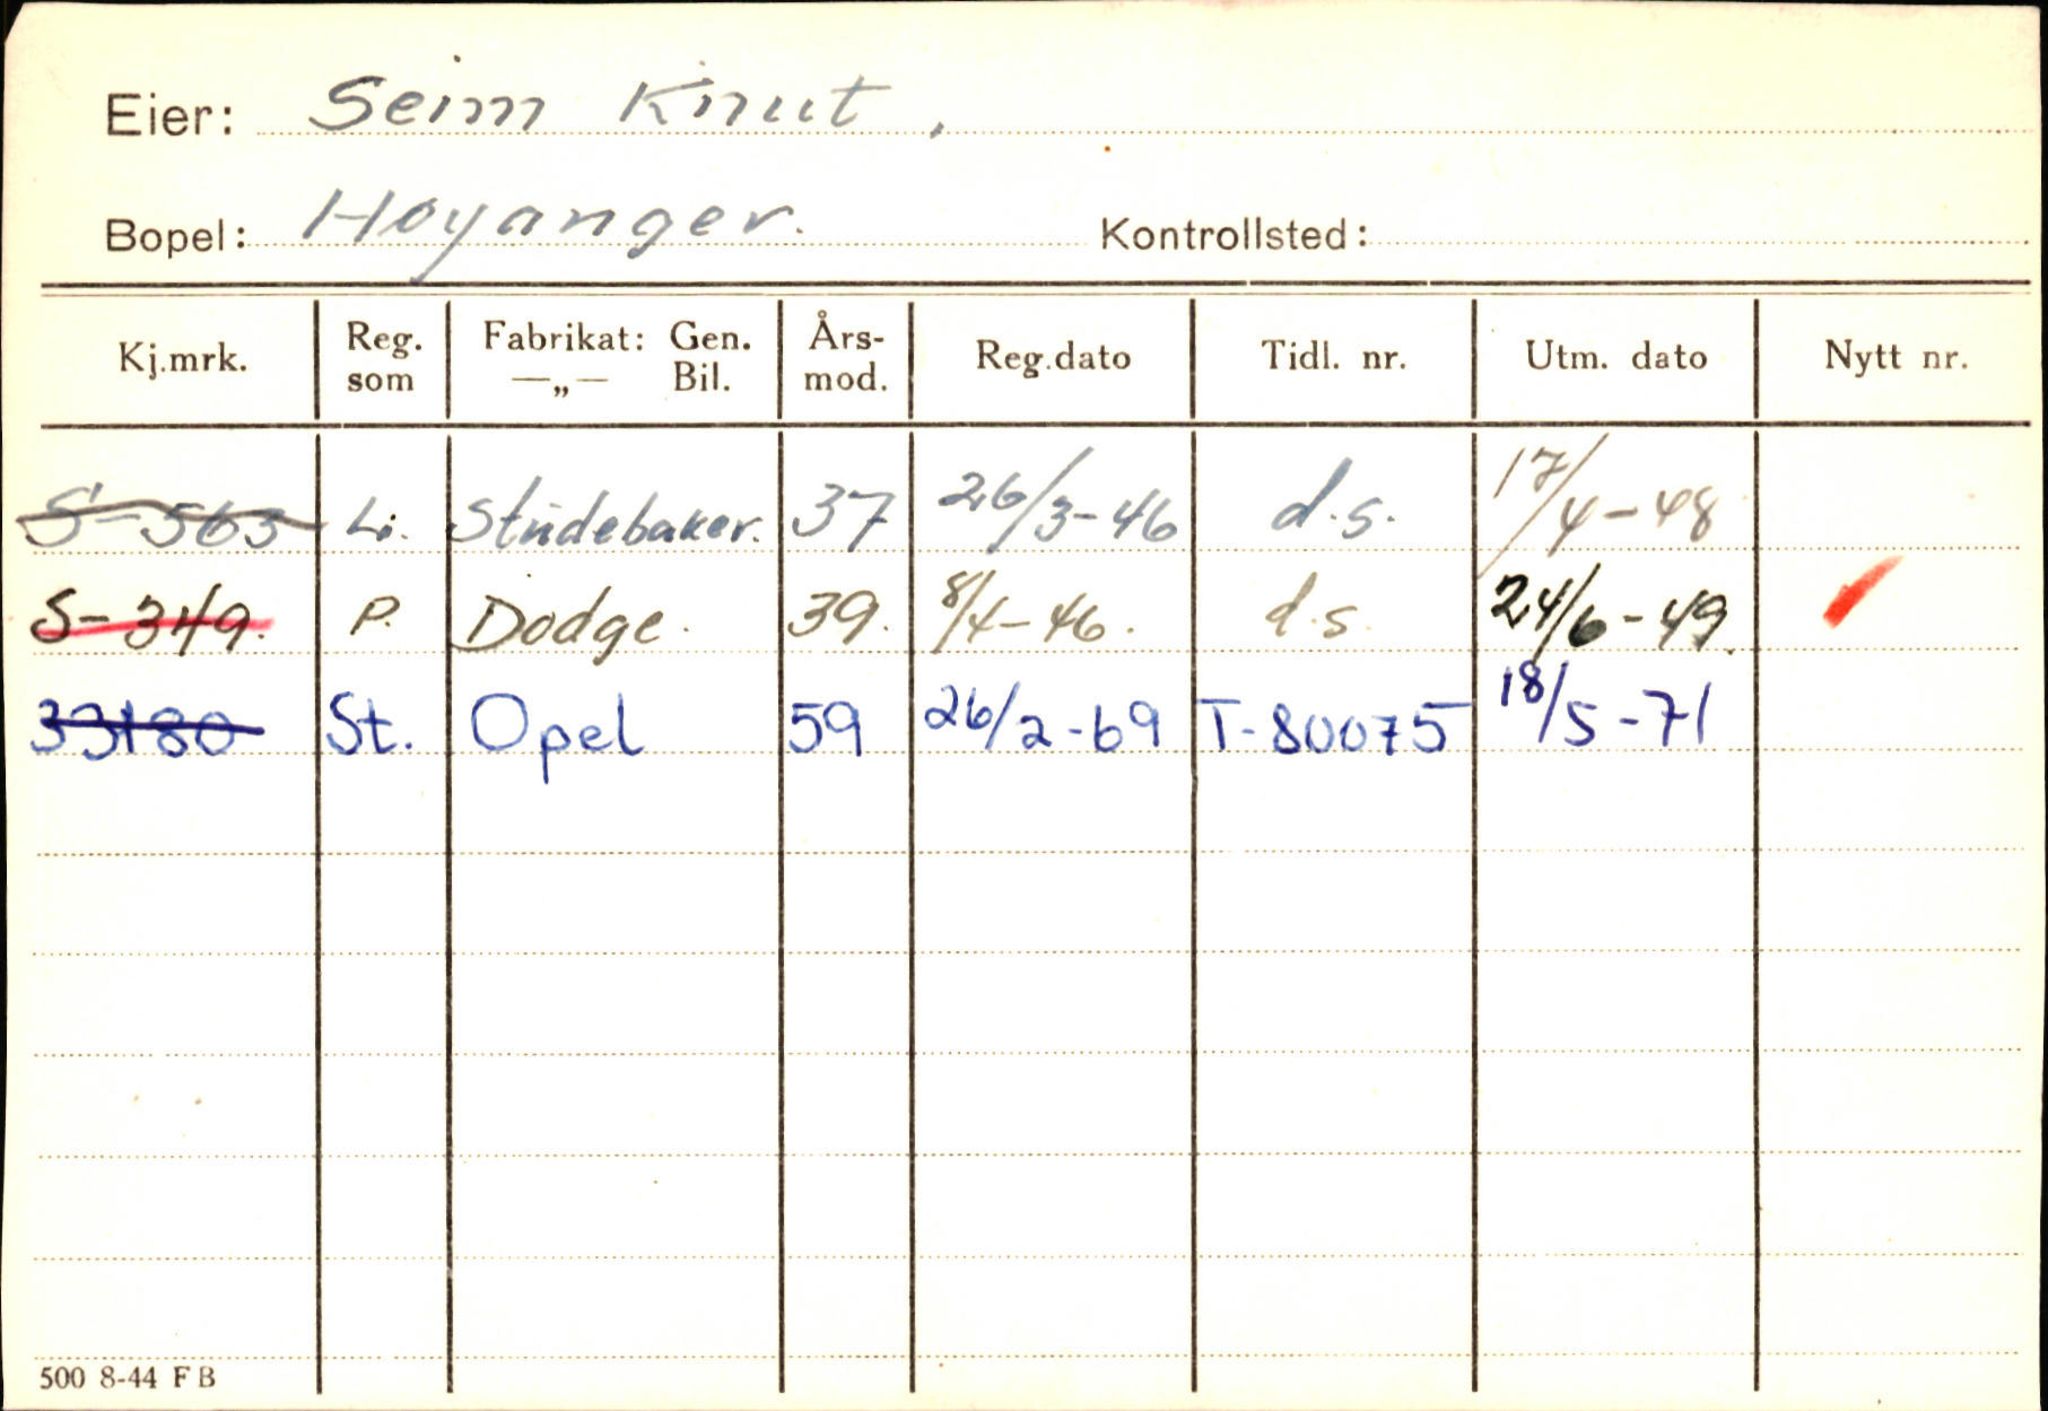 Eier: Seim Knut,
Bopel: Hoyanger. Kontrollsted:
Kj.mrk. Reg. som Fabrikat: Gen. —„— Bil. Års-mod. Reg.dato Tidl. nr. Utm. dato Nytt nr.
S-563 Li. Studebaker. 37 26/3-46 d.s. 17/4-48
S-349. P. Dodge. 39. 8/4-46. d.s. 24/6-49.
33180 St. Opel 59 26/2-69 T-80075 18/5-71
500 8-44 FB